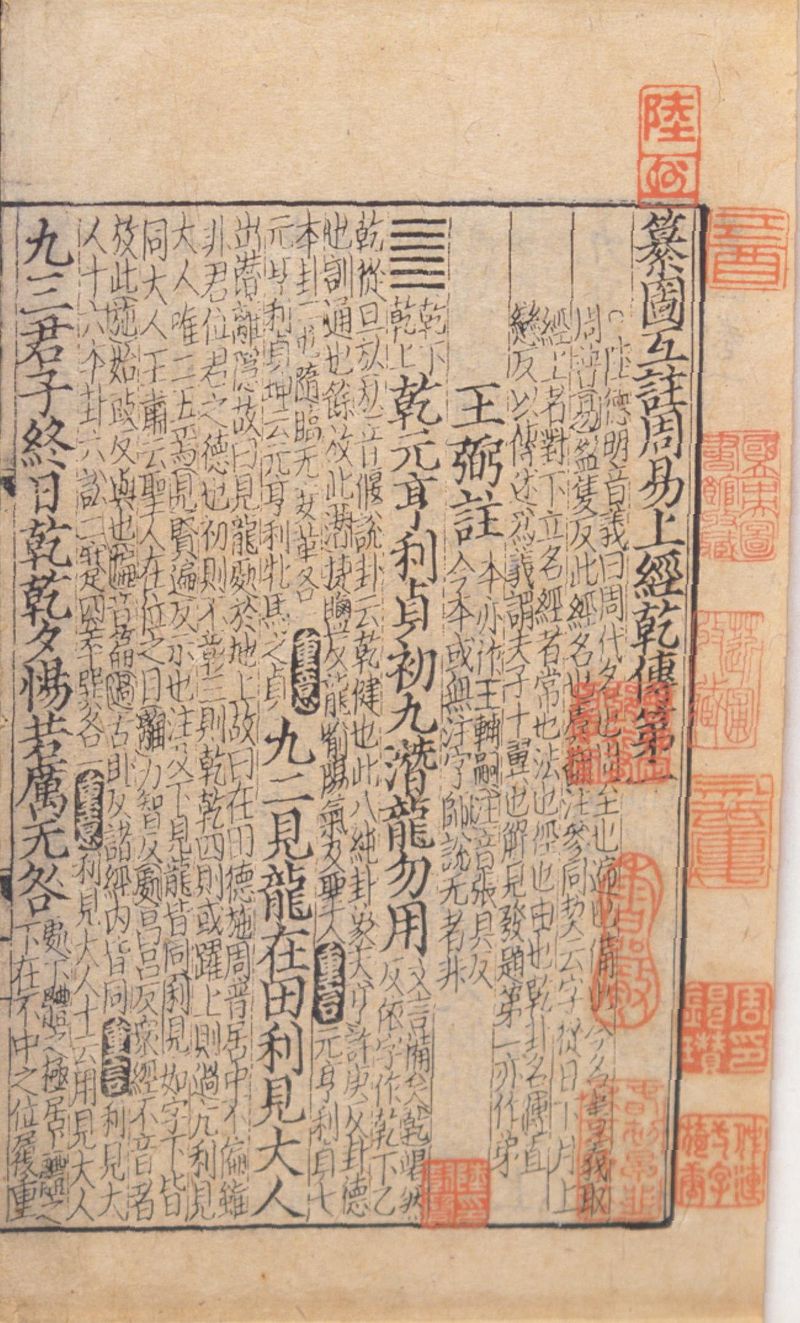 纂圖互註周易上經乾傳第一
陸德明音義曰周代名也
周易盈隻反此經名也虞翻注參同契云字從日下月上
經上者對下立名經者常也法也徑也由也乾卦名傳直
戀反以傳述爲義謂夫子十翼也解見發題第一亦作弟
王弼註
本亦作王輔嗣注音張具反
今本或無注字師說无者非
乾下
乾上
乾元亨利貞初九潛龍勿用
文言備矣乾竭然
反依字作乾下乙
乾從旦㫃㫃音偃說卦云乾健也此八純卦象天亨許庚反卦德
也訓通也餘放此潛捷鹽反龍喻陽氣及聖人
重言
元亨利貞七
本卦二也隨臨无妄革各一
元亨利貞坤云元亨利牝馬之貞
重意
九二見龍在田利見大人
出潛離隱故曰見龍處於地上故曰在田德施周普居中不偏雖
非君位君之德也初則不彰三則乾乾四則或躍上則過亢利見
大人唯二五焉見賢遍反示也注及下見龍皆同利見如字下皆
同大人王肅云聖人在位之目離力智反處昌呂反衆經不音者
放此施始豉反與也偏音篇過古臥反諸經內皆同
重言
利見大
人十六本卦六訟二蹇四萃巽各一
重意
利見大人十云用見大人
九三君子終日乾乾夕惕若厲无咎
處下體之極居上體之
下在不中之位履重
陸